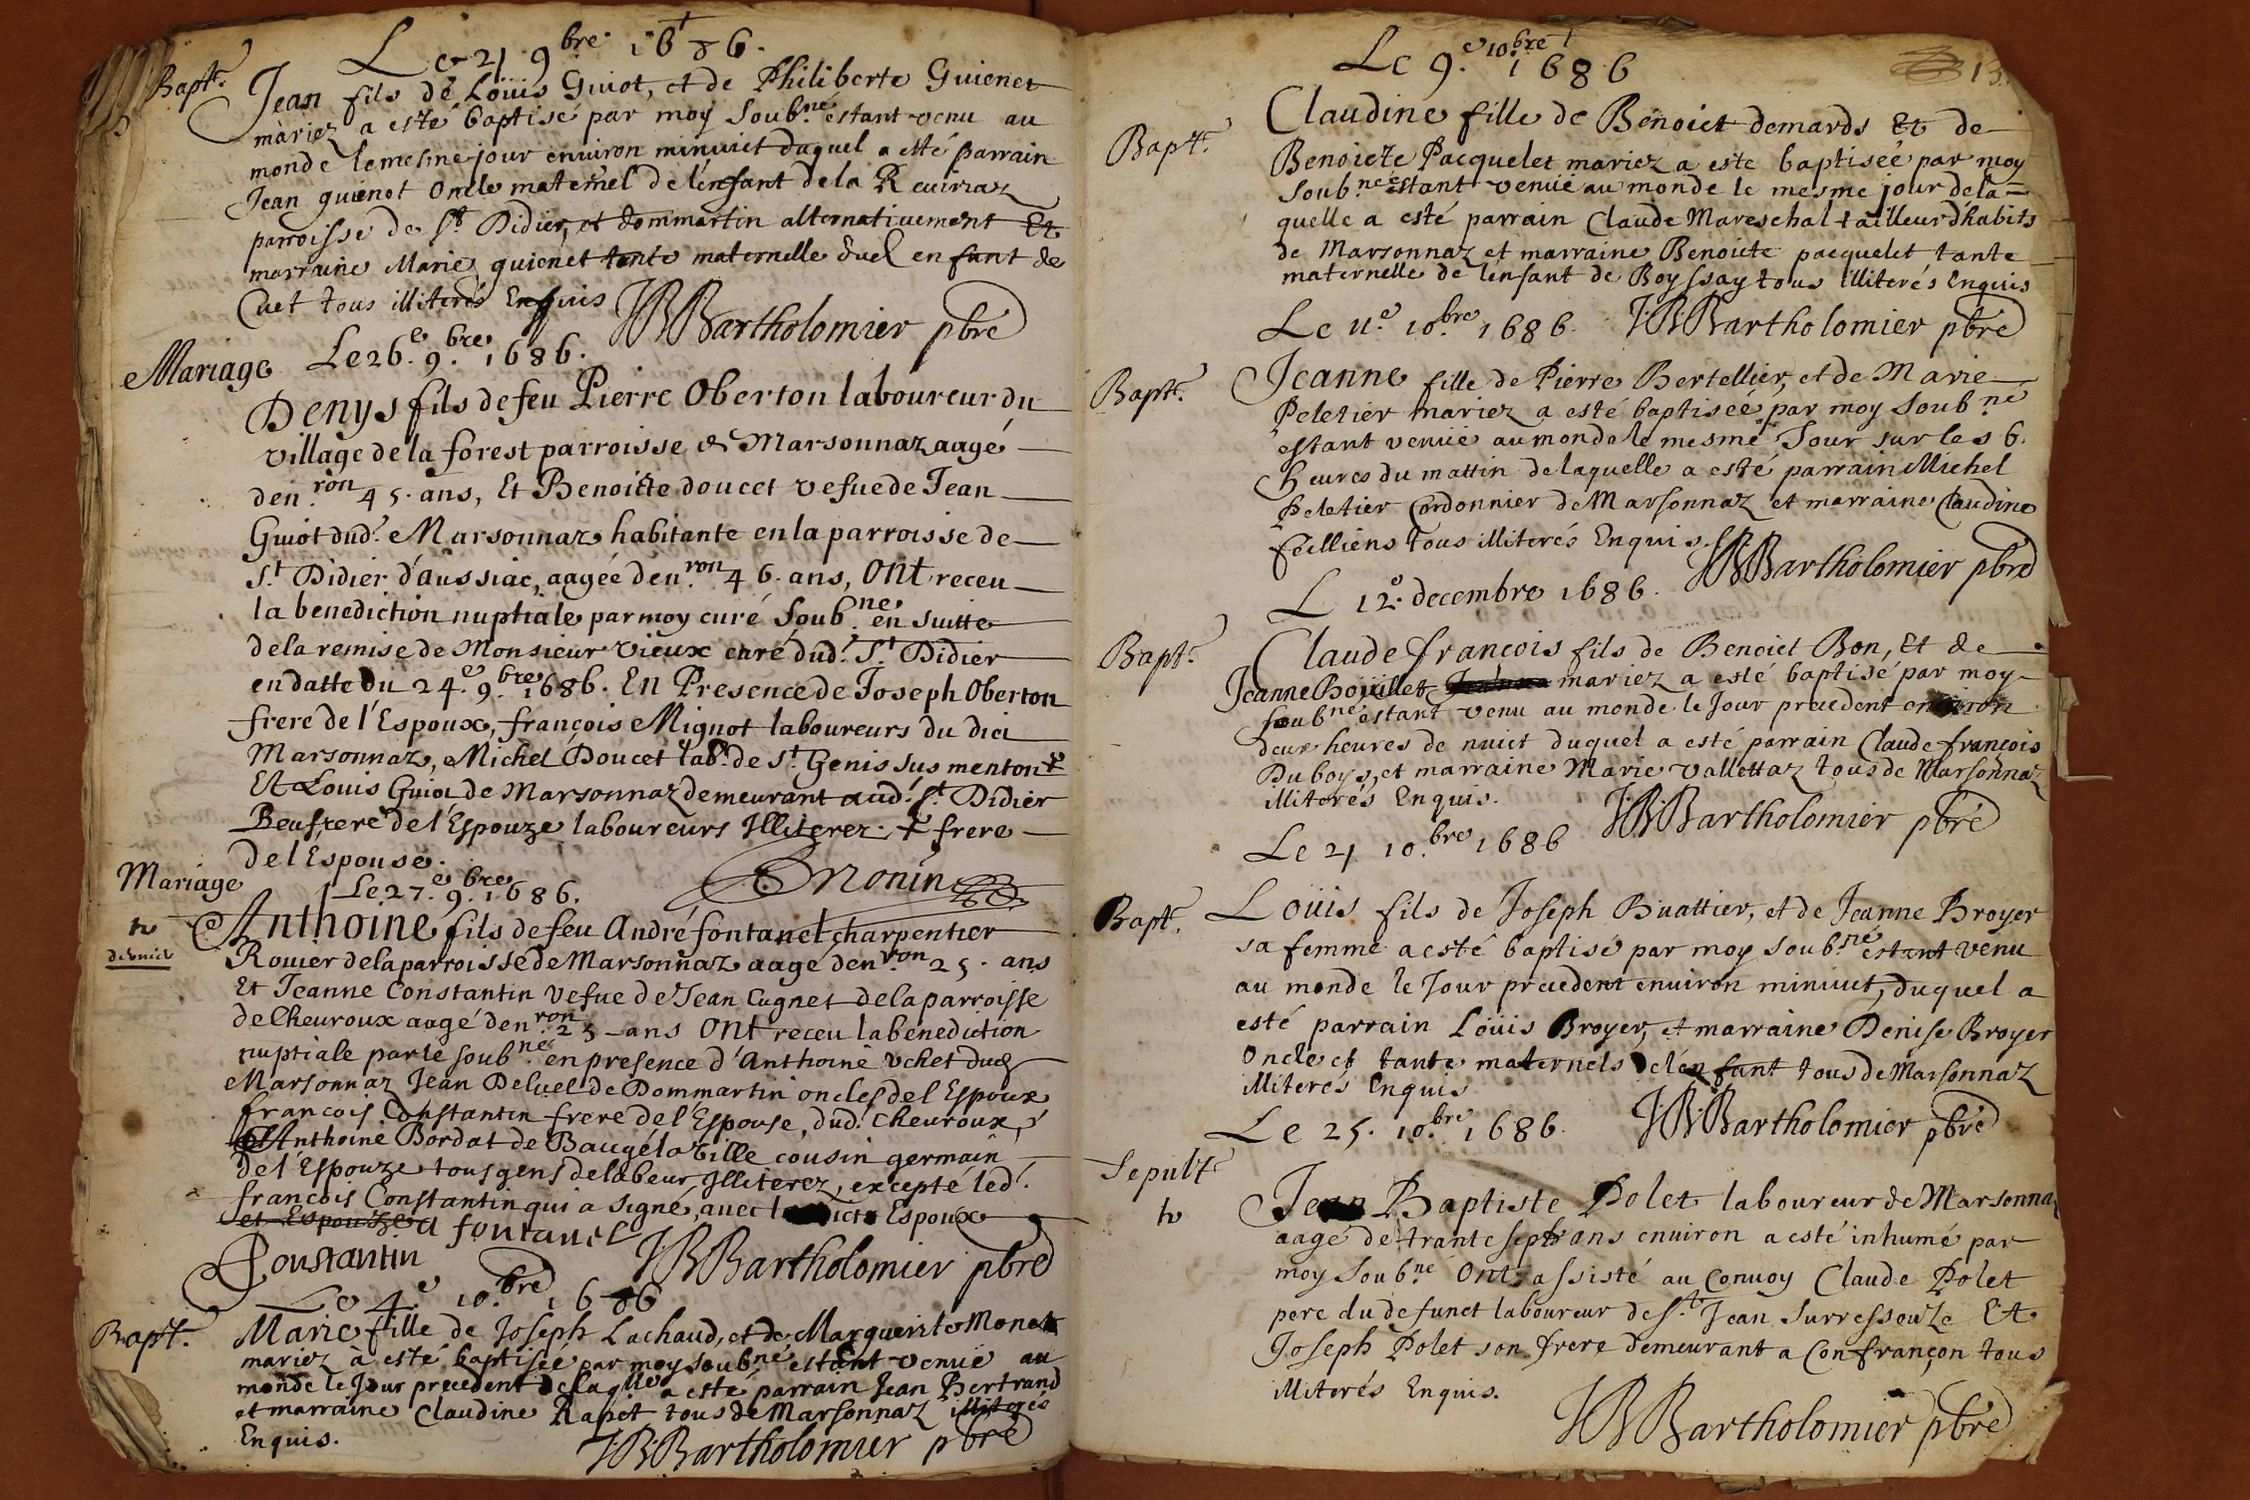 Le 21 9.bre 1686.
Bapt.e Jean fils de Loüis Guiot, et de Philiberte Guienet
mariez a esté baptisé par moy Soub.né estant venu au
monde le mesme jour enuiron minuict duquel a esté parrain
Jean guienot Oncle maternel de lenfant de la Reuiraz
parroisse de S.t Didier, et dommartin alternativement Et
marraine Marie guienet tante maternelle dud enfant de
Cuet tous illiterés Enquis JBBartholomier pbre
Mariage Le 26.e 9.bre 1686.
Denys fils de feu Pierre Oberton laboureur du
village de la forest parroisse de Marsonnaz aagé
den.ron 45. ans, Et Benoicte doucet vefue de Jean
Guiot dud.t Marsonnaz habitante en la parroisse de
S.t Didier d'aussiac, aagée den.ron 46. ans, Ont receu
la benediction nuptiale par moy curé Soub.ne en suitte
de la remise de Monsieur Vieux curé dud.t S.t Didier
en datte du 24.e 9.bre 1686. En Presence de Joseph Oberton
frere de l'Espoux, françois Mignot laboureurs du dict
Marsonnaz, Michel Doucet lab.r de S.t Genis sus menton +
Et Louis Guiot de Marsonnaz demeurant aud.t S.t Didier
Beufrere de l'Espouze laboureurs Illiterez. + frere
de l Espouse.
Monin
Mariage Le 27.e 9.bre 1686.
Anthoine fils de feu André fontanel charpentier
dernier Rouier de la parroisse de Marsonnaz aage den.ron 25. ans
Et Jeanne Constantin Vefue de Jean Cugnet de la parroisse
de Cheuroux aagé den.ron 25 ans Ont receu la benediction
nuptiale par le soub.ne en presence d'Anthoine Vchet dud
Marsonnaz Jean Deluel de Dommartin oncles de l Espoux
francois Constantin frere de l'Espouse, dud.t Cheuroux,
Anthoine Bordat de Baugé la Ville cousin germain
de l'Espouze tous gens de labeur Illiterez, excepté led.t
francois Constantin qui a signé, auec Espoux
et Espouze a fontanel
Constantin JBBartholomier pbre
Le 4.e 10.bre 1686
Bapt.e Marie fille de Joseph Lachaud, et de Marguerite Monet
mariez à esté baptisée par moy soub.né estant venuë au
monde le Jour precedent de laq.lle a esté parrain Jean Bertrand
et marraine Claudine Rapet tous de Marsonnaz illiterés
Enquis. JBBartholomier pbre
13.
Le 9.e 10.bre 1686
Bapt.e Claudine fille de Benoict demards Et de
Benoicte Pacquelet mariez a este baptisée par moy
Soub.né estant venüe au monde le mesme jour de la=
quelle a esté parrain Claude Mareschal tailleur d'habits
de Marsonnaz et marraine Benoicte pacquelet tante
maternelle de lenfant de Boyssay tous illiterés Enquis
Le 11.e 10.bre 1686. JBBartholomier pbre
Bapt.e Jeanne fille de Pierre Bertellier, et de Marie
Peletier mariez a esté baptiseé par moy Soub.né
estant venüe au monde le mesme Jour sur les 6.
heures du mattin de laquelle a esté parrain Michel
Peletier Cordonnier de Marsonnaz et marraine Claudine
feilliens tous illiterés Enquis. JBBartholomier pbre
L 12.e decembre 1686.
Bapt.e Claude francois fils de Benoict Bon, Et de
Jeanne Boüillet mariez a esté baptisé par moy
soub.né estant venu au monde le Jour precedent enuiron
deux heures de nuict duquel a esté parrain Claude françois
Duboys, et marraine Marie Vallettaz tous de Marsonnaz
illiterés Enquis. JBBartholomier pbre
Le 21 10.bre 1686
Bapt.e Loüis fils de Joseph Buattier, et de Jeanne Broyer
sa femme a esté baptisé par moy soub.né estant venu
au monde le Jour precedent enuiron minuict, duquel a
esté parrain Loüis Broyer, et marraine Denise Broyer
Oncle et tante maternels de lenfant tous de Marsonnaz
illiterés Enquis JBBartholomier pbre
Le 25. 10.bre 1686.
Sepult.e Jean Baptiste Polet laboureur de Marsonna
aagé de trante sept ans enuiron a esté inhumé par
moy Soub.né Ont assisté au Conuoy Claude Polet
pere du defunct laboureur de S.t Jean Surressouze Et
Joseph Polet son frere demeurant a Confrançon tous
illiterés Enquis.
JBBartholomier pbre